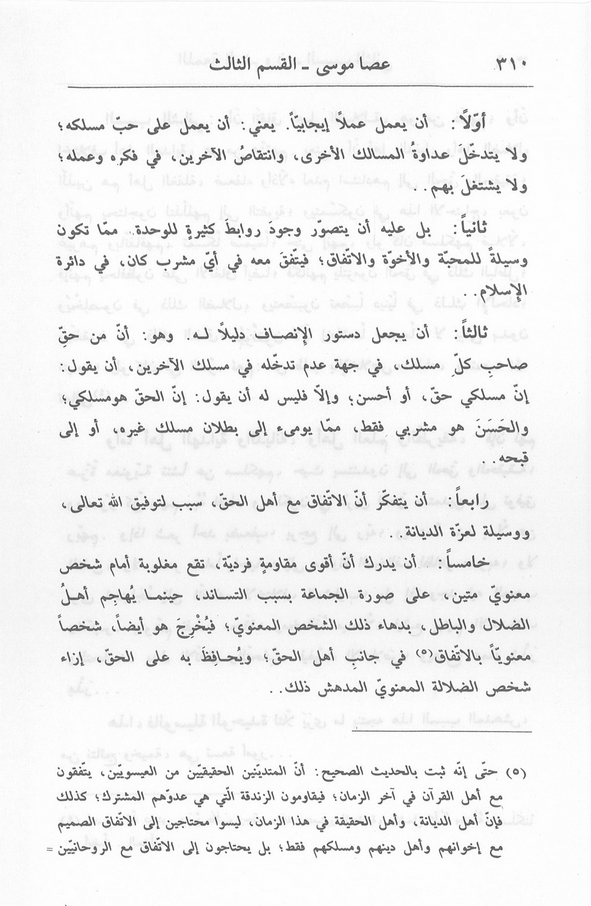 ٣١٠ عصا موسى ـ القسم الثالث
أوّلاً: أن يعمل عملاً إيجابيّاً. يعني: أن يعمل على حبّ مسلكه؛
ولا يتدخّلَ عداوةُ المسالك الأخرى، وانتقاصُ الآخرين، في فكره وعمله؛
ولا يشتغلَ بهم..
ثانياً: بل عليه أن يتصور وجودَ روابطَ كثيرةٍ للوحدة.. ممّا تكون
وسيلةً للمحبّة والأخوّة والاتفاق؛ فيتّفقَ معه في أيّ مشرب كان، في دائرة
الإسلام..
ثالثاً: أن يجعل دستور الإنصاف دليلاً له. وهو: أنّ من حقّ
صاحبِ كلِّ مسلك، في جهة عدم تدخّله في مسلك الآخرين، أن يقول:
إنّ مسلكي حقّ، أو أحسن؛ وإلّا فليس له أن يقول: إنّ الحقّ هومسلكي؛
والحَسَنَ هو مشربي فقط، ممّا يومىء إلى بطلان مسلك غيره، أو إلى
قبحه..
رابعاً: أن يتفكّر أنّ الاتّفاق مع أهل الحقّ، سبب لتوفيق الله تعالى،
ووسيلة لعزّة الديانة..
خامساً: أن يدرك أنّ أقوى مقاومةٍ فرديّة، تقع مغلوبة أمام شخص
معنويّ متين، على صورة الجماعة بسبب التساند، حينما يُهاجِم أهلُ
الضلال والباطل، بدهاء ذلك الشخص المعنويّ؛ فيُخْرِجَ هو أيضاً، شخصاً
معنويّاً بالاتّفاق(٥) في جانب أهل الحقّ؛ ويُحافِظَ به على الحقّ، إزاء
شخص الضلالة المعنويّ المدهش ذلك..
(٥) حتّى إنّه ثبت بالحديث الصحيح: أنّ المتديّنين الحقيقيّين من العيسويّين، يتّفقون
مع أهل القرآن في آخر الزمان؛ فيقاومون الزندقة الّتي هي عدوّهم المشترك؛ كذلك
فإنّ أهل الديانة، وأهل الحقيقة في هذا الزمان، ليسوا محتاجين إلى الاتّفاق الصميم
مع إخوانهم وأهل دينهم ومسلكهم فقط؛ بل يحتاجون إلى الاتّفاق مع الروحانيّين =